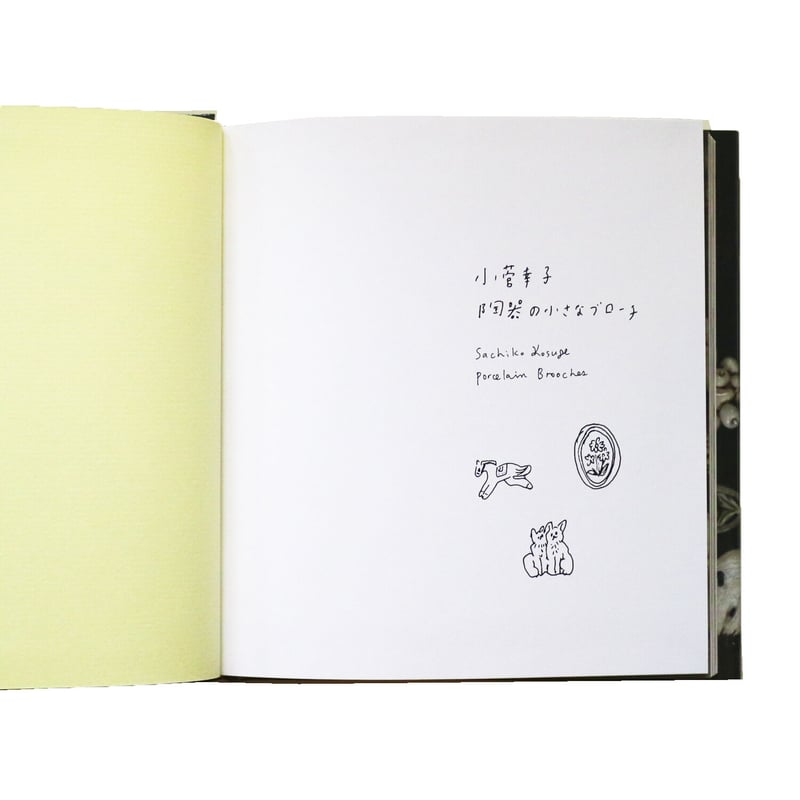 小菅幸子
陶器の小さなブローチ
Sachiko Kosuge
Porcelain Brooches